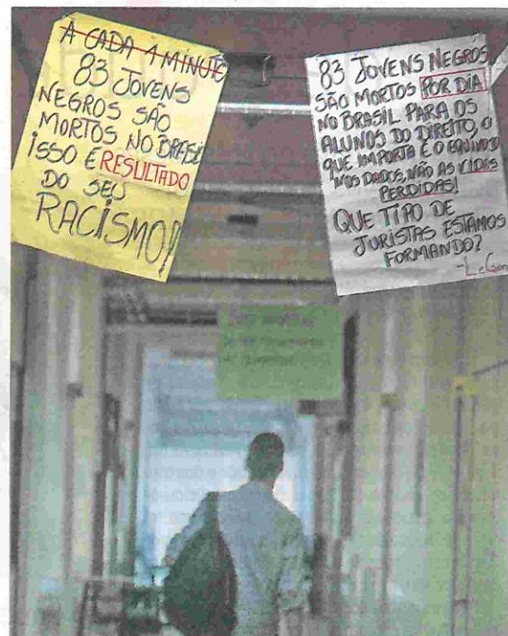 A CADA 1 MINUTO
83 JOVENS
NEGROS SÃO
MORTOS NO BRASIL
ISSO É RESULTADO
DO SEU
RACISMO!
83 JOVENS NEGROS
SÃO MORTOS POR DIA
NO BRASIL. PARA OS
ALUNOS DO DIREITO, O
QUE IMPORTA É O EQUIVOCO
NOS DADOS, NÃO AS VIDAS
PERDIDAS!
QUE TIPO DE
JURISTAS ESTAMOS
FORMANDO?